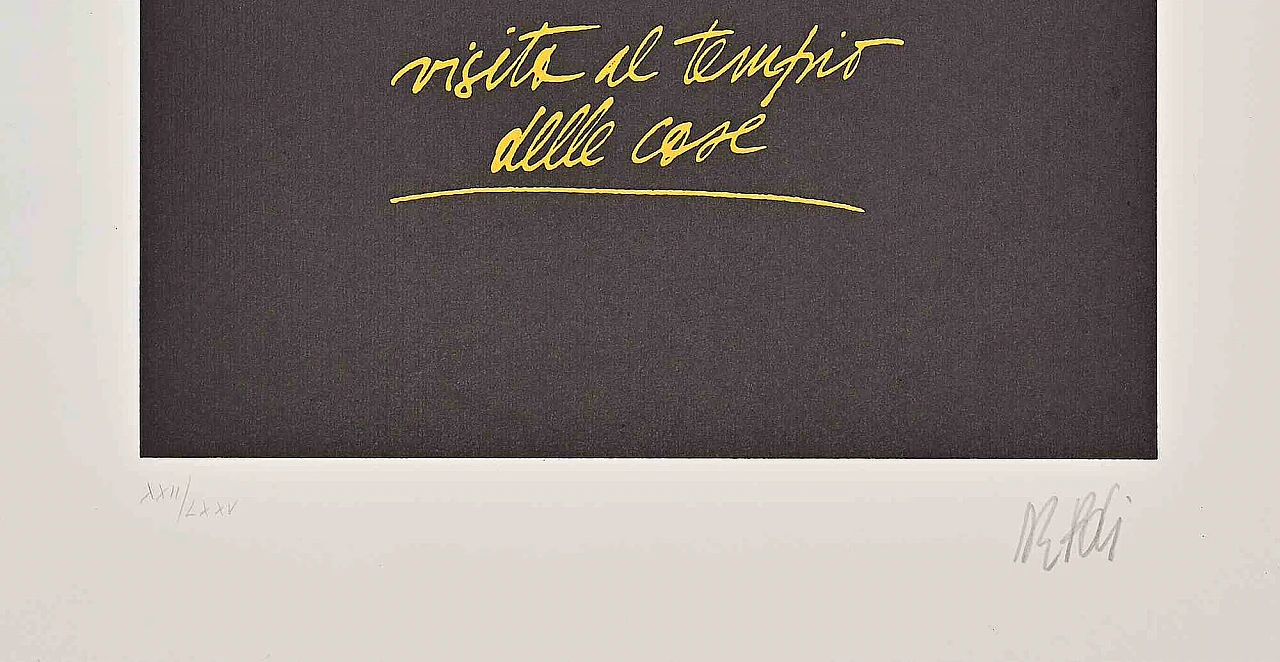 visita al tempio
delle case
XXII/LXXV